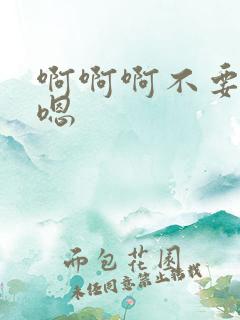 啊啊啊不要
嗯
而包花园
未经同意禁止转载